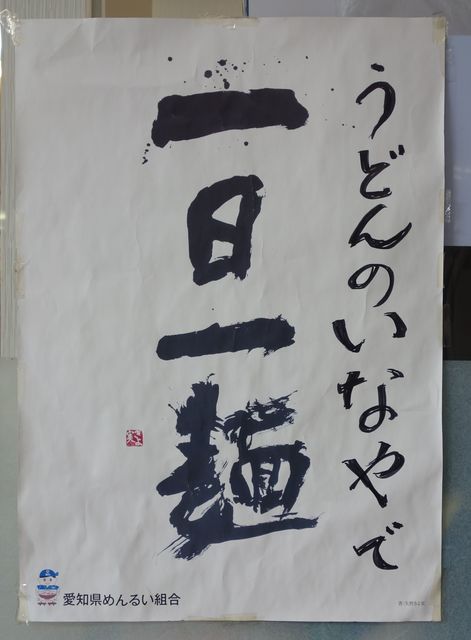 うどんのいなやで
一日一麺
愛知県めんるい組合